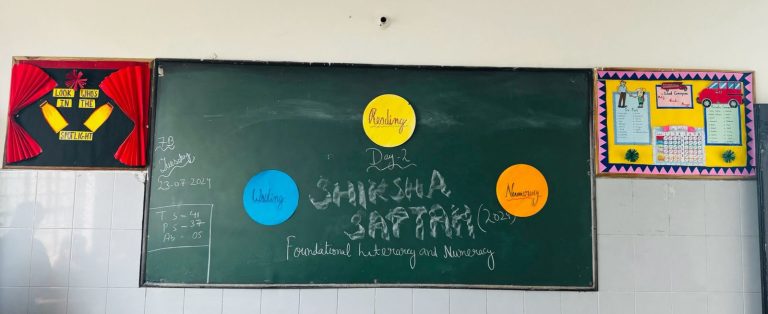 LOOK WHO'S
IN THE
SPOTLIGHT
7B
Tuesday
23-07-2024
T S -
P S - 37
Ab - 05
Reading
Day-2
Writing
Numeracy
SHIKSHA
SAPTAH (2024)
Foundational Literarcy and Numeracy